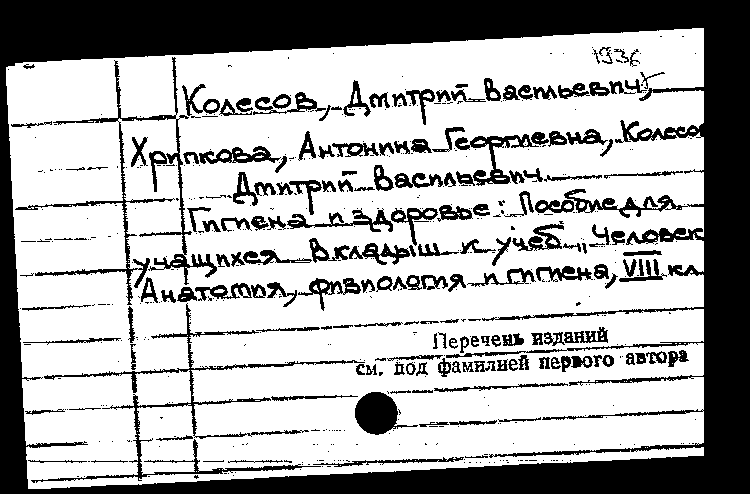 1936
Колесов, Дмитрий Васильевич,
Хрипкова, Антонина Георгиевна, Колесов
Дмитрий Васильевич.
Гигиена и здоровье: Пособие для
учащихся Вкладыш к учеб. „Человек
Анатомия, физиология и гигиена, VIII кл
Перечень изданий
см. под фамилией первого автора